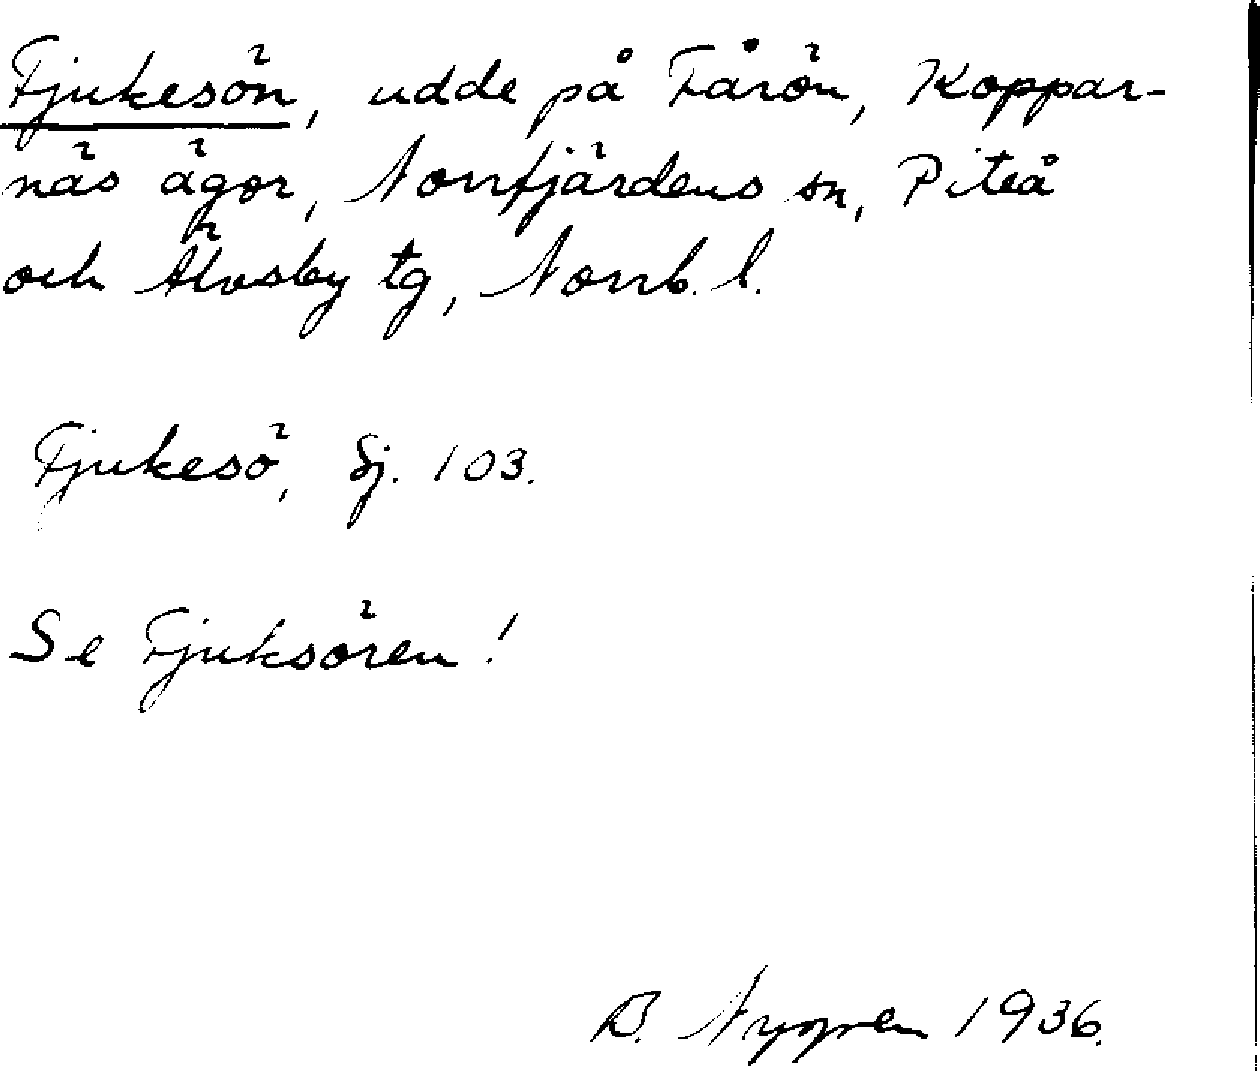 Fjukesön, udde på Fårön, Koppar-
näs ägor, Norrfjärdens sn, Piteå
och Älvsby tg, Norrb. l.
Fjukesö, Sj. 103.
Se Fjuksören!
B. Nygren 1936.